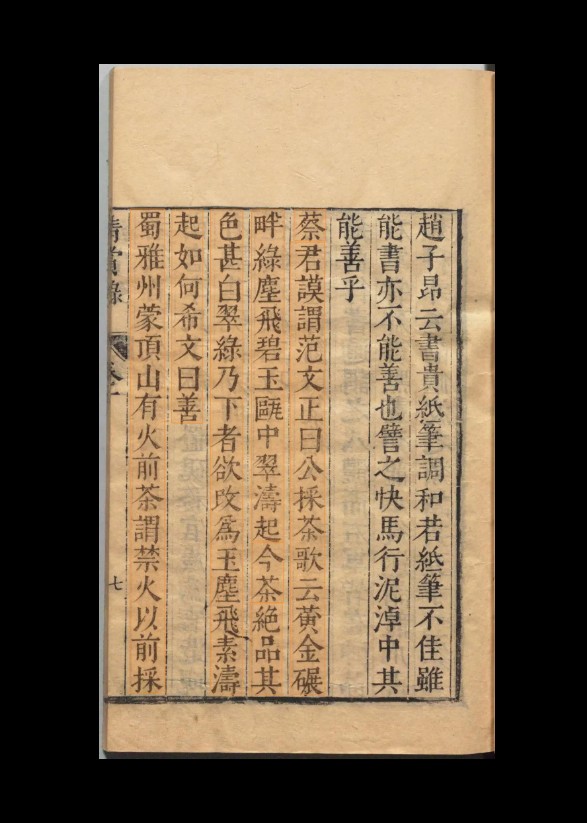 趙子昂云書貴紙筆調和若紙筆不佳雖
能書亦不能善也譬之快馬行泥淖中其
能善乎
蔡君謨謂范文正曰公採茶歌云黃金碾
畔綠塵飛碧玉甌中翠濤起今茶絕品其
色甚白翠綠乃下者欲改為玉塵飛素濤
起如何希文曰善
蜀雅州蒙頂山有火前茶謂禁火以前採
清賞錄
七